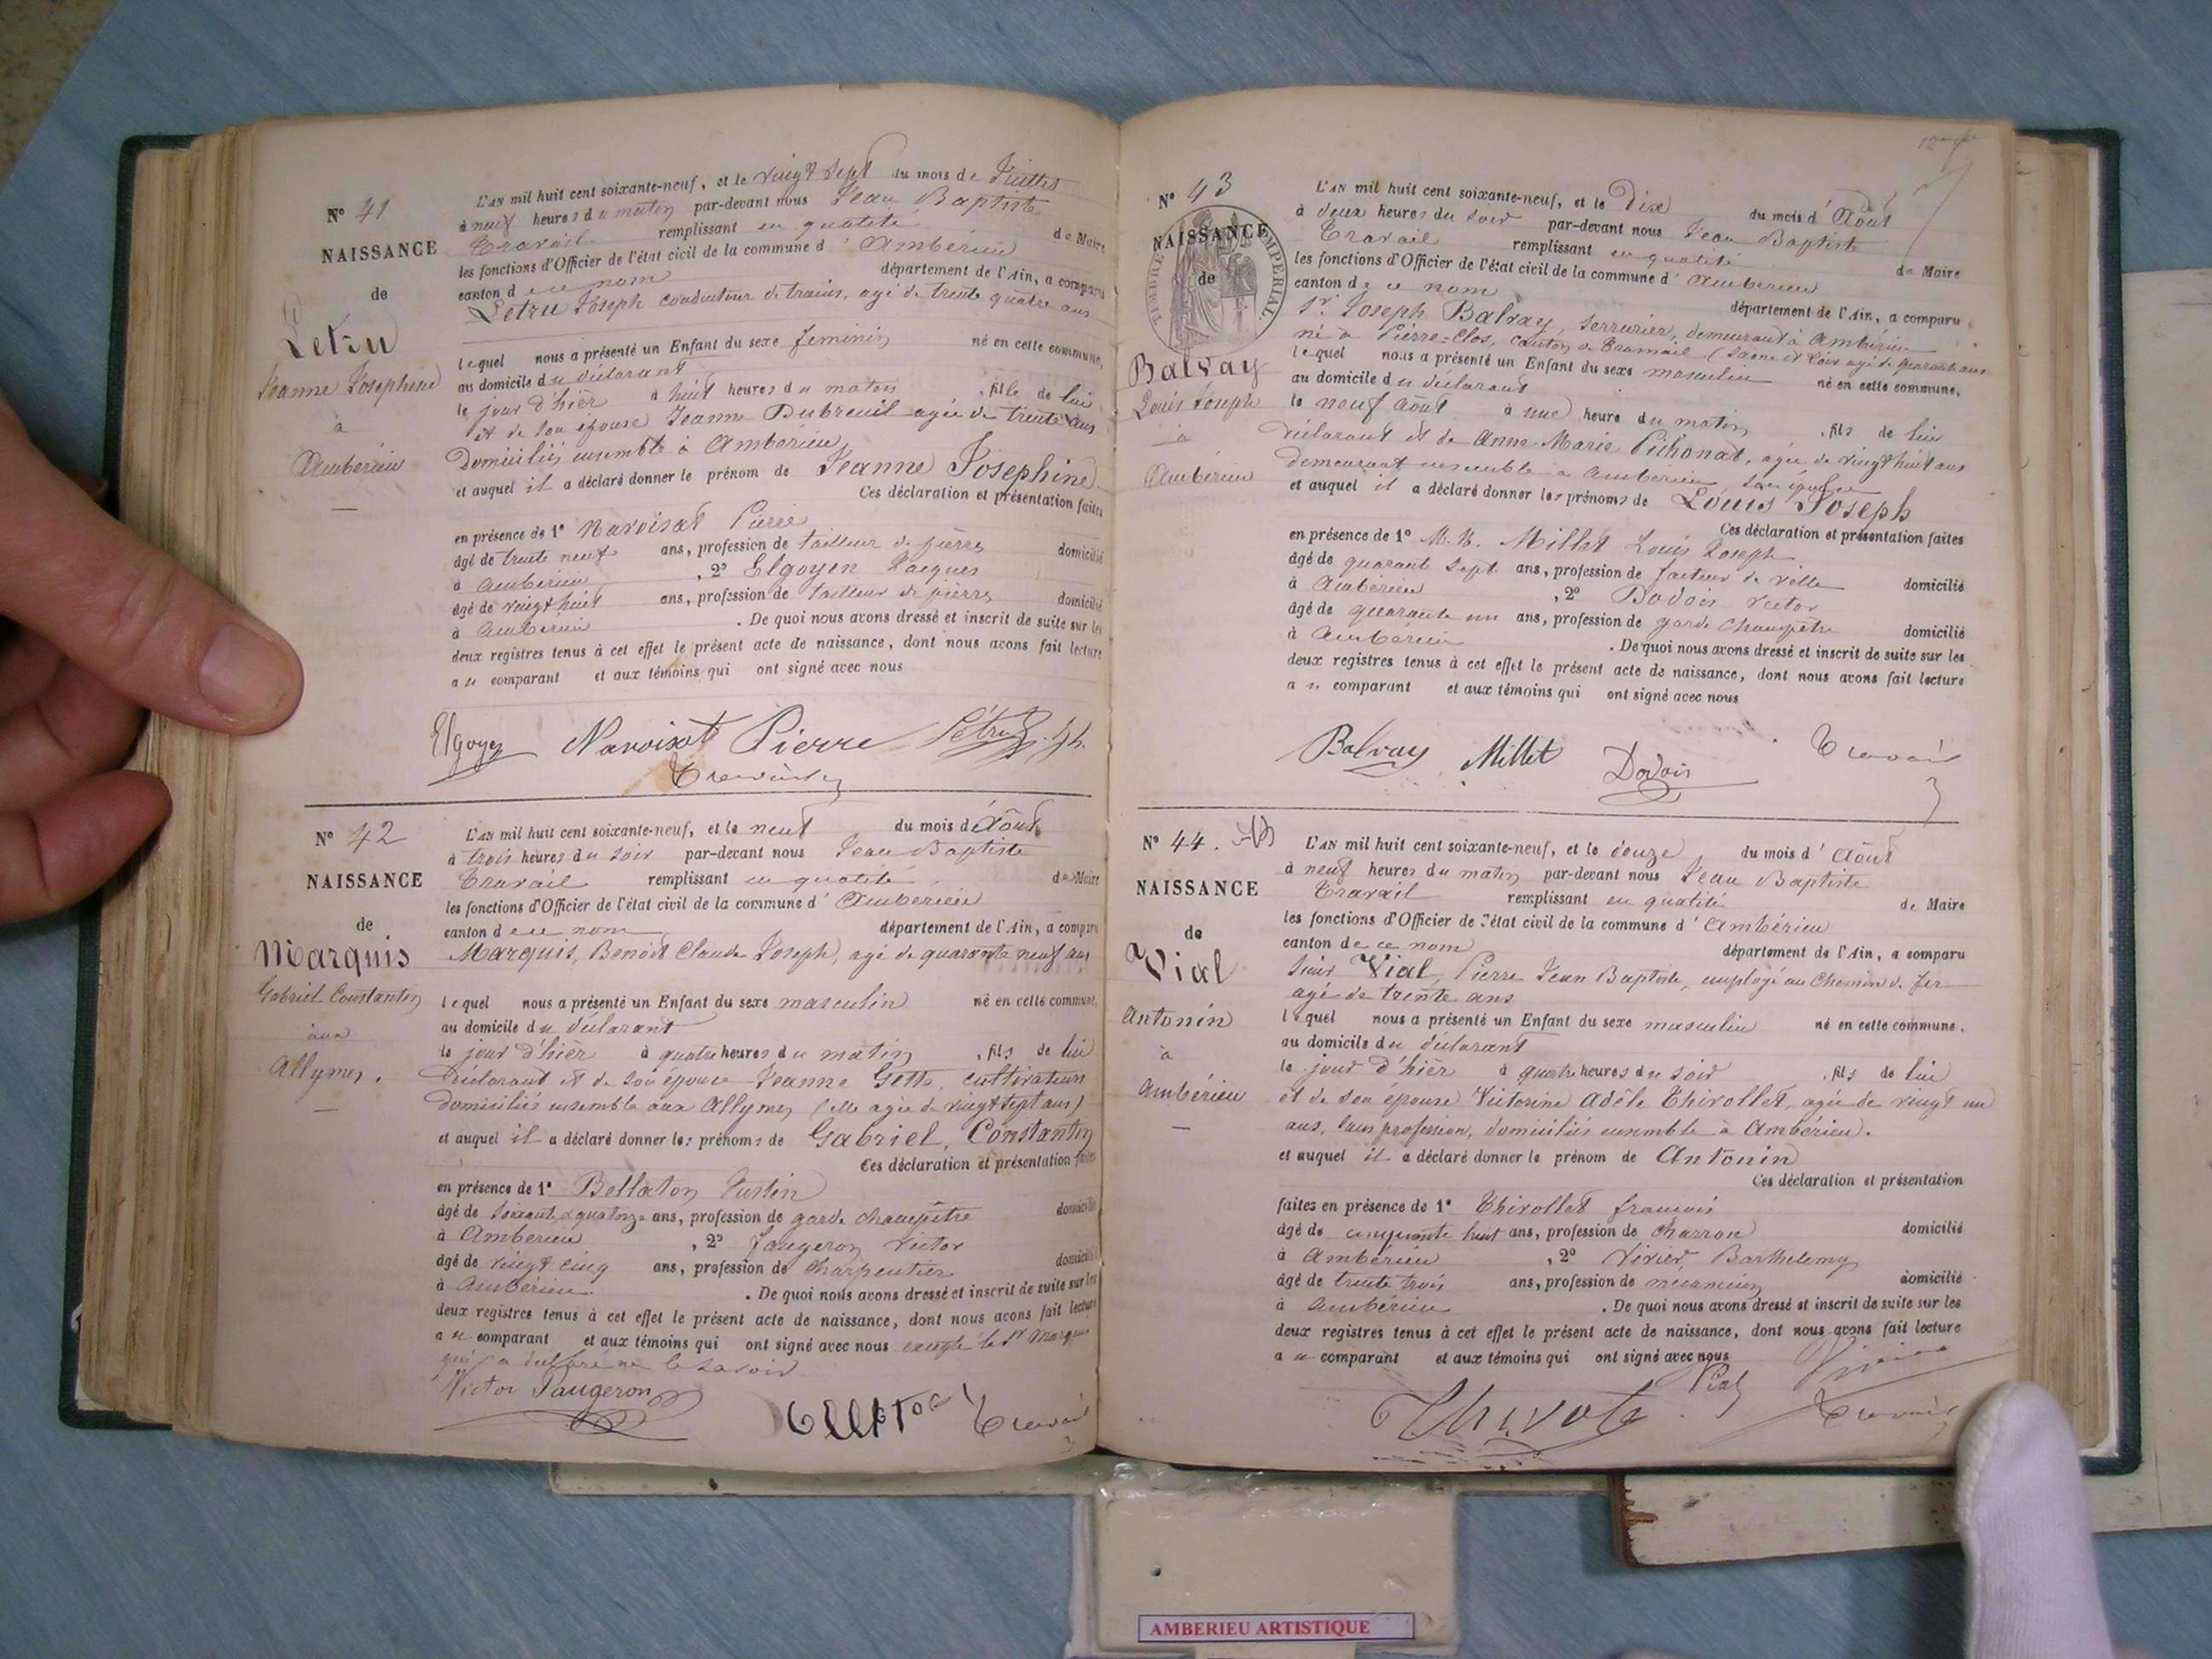 N° 41
NAISSANCE
de
Letru
Jeanne Josephine
à
Ambérieu
L'AN mil huit cent soixante-neuf, et le vingt sept du mois de Juillet
à neuf heures du matin par-devant nous Jean Baptiste
Travail remplissant en qualité de Maire
les fonctions d'Officier de l'état civil de la commune d'Ambérieu
canton de ce nom département de l'Ain, a comparu
Letru Joseph conducteur de trains, agé de trente quatre ans
lequel nous a présenté un Enfant du sexe feminin né en cette commune,
au domicile du déclarant
le jour d'hier à huit heures du matin, fille de lui
et de son épouse Jeanne Dubreuil agée de trente ans
Domiciliés ensemble à Ambérieu
et auquel il a déclaré donner le prénom de Jeanne Josephine
Ces déclaration et présentation faites
en présence de 1° Navoisat Pierre
âgé de trente neuf ans, profession de tailleur de pierres domicilié
à Ambérieu, 2° Elgoyen Jacques
âgé de vingt huit ans, profession de tailleur de pierres domicilié
à Ambérieu. De quoi nous avons dressé et inscrit de suite sur les
deux registres tenus à cet effet le présent acte de naissance, dont nous avons fait lecture
au comparant et aux témoins qui ont signé avec nous
Elgoyen Navoisat Pierre Létru Jh.
Travail
N° 42
NAISSANCE
de
Marquis
Gabriel Constantin
aux
Allymes.
L'AN mil huit cent soixante-neuf, et le neuf du mois d'Août
à trois heures du soir par-devant nous Jean Baptiste
Travail remplissant en qualité de Maire
les fonctions d'Officier de l'état civil de la commune d'Ambérieu
canton de ce nom département de l'Ain, a comparu
Marquis, Benoit Claude Joseph, agé de quarante neuf ans
lequel nous a présenté un Enfant du sexe masculin né en cette commune,
au domicile du déclarant
le jour d'hier à quatre heures du matin, fils de lui
déclarant et de son épouse Jeanne Gette, cultivateurs
domiciliés ensemble aux Allymes (elle agée de vingt sept ans)
et auquel il a déclaré donner les prénoms de Gabriel, Constantin
Ces déclaration et présentation faites
en présence de 1° Bellaton Justin
âgé de soixante quatorze ans, profession de garde champêtre domicilié
à Ambérieu, 2° Faugeron Victor
âgé de vingt cinq ans, profession de Charpentier domicilié
à Ambérieu. De quoi nous avons dressé et inscrit de suite sur les
deux registres tenus à cet effet le présent acte de naissance, dont nous avons fait lecture
au comparant et aux témoins qui ont signé avec nous excepté le Sr Marquis
qui a déclaré ne le savoir
Victor Faugeron Travail
N° 43
NAISSANCE
de
TIMBRE IMPERIAL
Balvay
Louis Joseph
à
Ambérieu
L'AN mil huit cent soixante-neuf, et le Dix du mois d'Août
à deux heures du soir par-devant nous Jean Baptiste
Travail remplissant en qualité de Maire
les fonctions d'Officier de l'état civil de la commune d'Ambérieu
canton de ce nom département de l'Ain, a comparu
Sr. Joseph Balvay, serrurier, demeurant à Ambérieu
né à Pierre-Clos, canton de Tramail (Saone et Loire agé de quarante ans
lequel nous a présenté un Enfant du sexe masculin né en cette commune,
au domicile du déclarant
le neuf Août à une heure du matin, fils de lui
déclarant et de Anne Marie Pichonat, agée de vingt huit ans
demeurant ensemble à Ambérieu, son épouse
et auquel il a déclaré donner les prénoms de Louis Joseph
Ces déclaration et présentation faites
en présence de 1° Millet Louis Joseph
âgé de quarante sept ans, profession de facteur de ville domicilié
à Ambérieu, 2° Dodois Victor
âgé de quarante un ans, profession de garde champêtre domicilié
à Ambérieu. De quoi nous avons dressé et inscrit de suite sur les
deux registres tenus à cet effet le présent acte de naissance, dont nous avons fait lecture
au comparant et aux témoins qui ont signé avec nous
Balvay Millet Dodois Travail
N° 44.
NAISSANCE
de
Vial
Antonin
à
Ambérieu
L'AN mil huit cent soixante-neuf, et le douze du mois d'Août
à neuf heures du matin par-devant nous Jean Baptiste
Travail remplissant en qualité de Maire
les fonctions d'Officier de l'état civil de la commune d'Ambérieu
canton de ce nom département de l'Ain, a comparu
Sieur Vial, Pierre Jean Baptiste, employé au Chemin de fer
agé de trente ans
lequel nous a présenté un Enfant du sexe masculin né en cette commune,
au domicile du déclarant
le jour d'hier à quatre heures du soir, fils de lui
et de son épouse Victorine Adèle Thivollet, agée de vingt un
ans, sans profession, domiciliés ensemble à Ambérieu.
et auquel il a déclaré donner le prénom de Antonin
Ces déclaration et présentation
faites en présence de 1° Thivollet francois
âgé de cinquante huit ans, profession de charron domicilié
à Ambérieu, 2° Vivier Barthelemy
âgé de trente trois ans, profession de mécanicien domicilié
à Ambérieu. De quoi nous avons dressé et inscrit de suite sur les
deux registres tenus à cet effet le présent acte de naissance, dont nous avons fait lecture
au comparant et aux témoins qui ont signé avec nous
Vial
Travail
AMBERIEU ARTISTIQUE